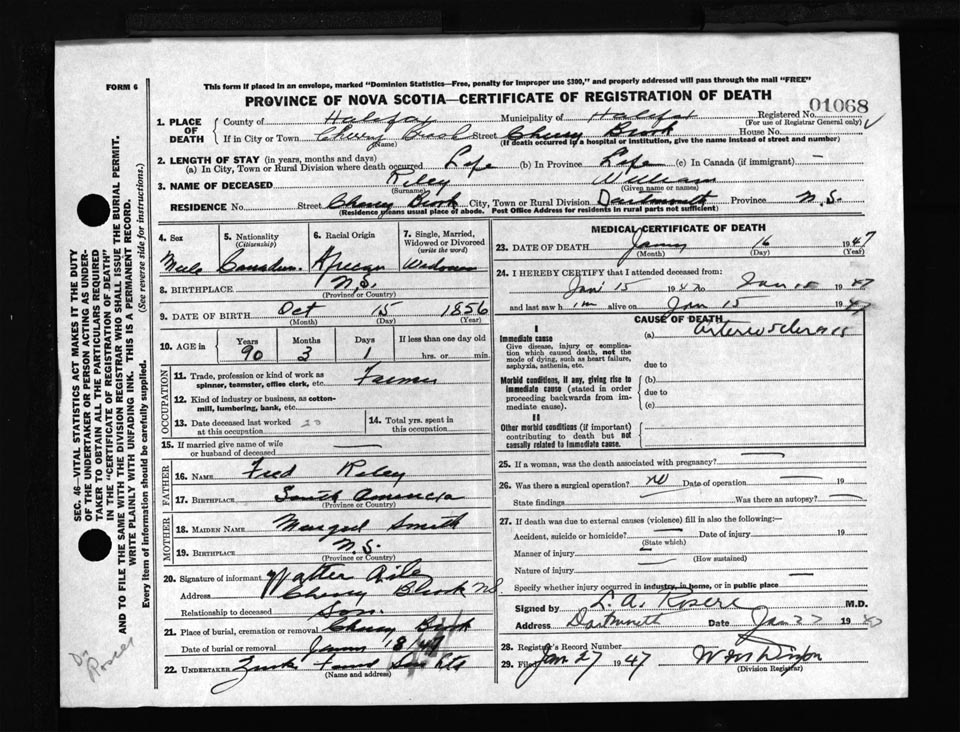 This form if placed in an envelope, marked "Dominion Statistics—Free, penalty for improper use $300," and properly addressed will pass through the mail "FREE"
FORM 6
PROVINCE OF NOVA SCOTIA—CERTIFICATE OF REGISTRATION OF DEATH
01068
1. PLACE OF DEATH
County of Halifax Municipality of Halifax Registered No.
(For use of Registrar General only)
If in City or Town Cherry Brook Street Cherry Brook House No.
(Name) (If death occurred in a hospital or institution, give the name instead of street and number)
2. LENGTH OF STAY (in years, months and days)
(a) In City, Town or Rural Division where death occurred Life (b) In Province Life (c) In Canada (if immigrant) —
3. NAME OF DECEASED Riley William
(Surname) (Given name or names)
RESIDENCE No. Street Cherry Brook City, Town or Rural Division Dartmouth Province N.S.
(Residence means usual place of abode. Post Office Address for residents in rural parts not sufficient)
4. Sex Male
5. Nationality (Citizenship) Canadian
6. Racial Origin African
7. Single, Married, Widowed or Divorced (write the word) Widower
8. BIRTHPLACE N.S.
(Province or Country)
9. DATE OF BIRTH Oct 15 1856
(Month) (Day) (Year)
10. AGE in Years 90 Months 3 Days 1 If less than one day old hrs. or min.
OCCUPATION
11. Trade, profession or kind of work as spinner, teamster, office clerk, etc. Farmer
12. Kind of industry or business, as cotton-mill, lumbering, bank, etc.
13. Date deceased last worked at this occupation
14. Total yrs. spent in this occupation
15. If married give name of wife or husband of deceased —
FATHER
16. NAME Fred Riley
17. BIRTHPLACE South America
(Province or Country)
MOTHER
18. MAIDEN NAME Smith
19. BIRTHPLACE N.S.
(Province or Country)
20. Signature of informant Walter
Address Cherry Brook NS
Relationship to deceased Son.
21. Place of burial, cremation or removal Cherry Brook
Date of burial or removal 18/47
22. UNDERTAKER
(Name and address)
MEDICAL CERTIFICATE OF DEATH
23. DATE OF DEATH 16 1947
(Month) (Day) (Year)
24. I HEREBY CERTIFY that I attended deceased from:
Jan 15 1947 to Jan 1947
and last saw him alive on Jan 15 1947
CAUSE OF DEATH
I
Immediate cause
Give disease, injury or complication which caused death, not the mode of dying, such as heart failure, asphyxia, asthenia, etc.
(a) arteriosclerosis
due to
Morbid conditions, if any, giving rise to immediate cause (stated in order proceeding backwards from immediate cause).
(b)
due to
(c)
II
Other morbid conditions (if important) contributing to death but not causally related to immediate cause.
25. If a woman, was the death associated with pregnancy? —
26. Was there a surgical operation? no Date of operation — 19
State findings Was there an autopsy? —
27. If death was due to external causes (violence) fill in also the following:—
Accident, suicide or homicide? — Date of injury — 19
(State which)
Manner of injury —
(How sustained)
Nature of injury —
Specify whether injury occurred in industry, in home, or in public place —
Signed by L. A. Rosere M.D.
Address Dartmouth Date Jan 27 19
28. Registrar's Record Number
29. Filed Jan 27 1947
(Division Registrar)
SEC. 46—VITAL STATISTICS ACT MAKES IT THE DUTY
OF THE UNDERTAKER OR PERSON ACTING AS UNDER-
TAKER TO OBTAIN ALL THE PARTICULARS REQUIRED
IN THE "CERTIFICATE OF REGISTRATION OF DEATH"
AND TO FILE THE SAME WITH THE DIVISION REGISTRAR WHO SHALL ISSUE THE BURIAL PERMIT.
WRITE PLAINLY WITH UNFADING INK. THIS IS A PERMANENT RECORD.
Every item of information should be carefully supplied. (See reverse side for instructions.)
Dr